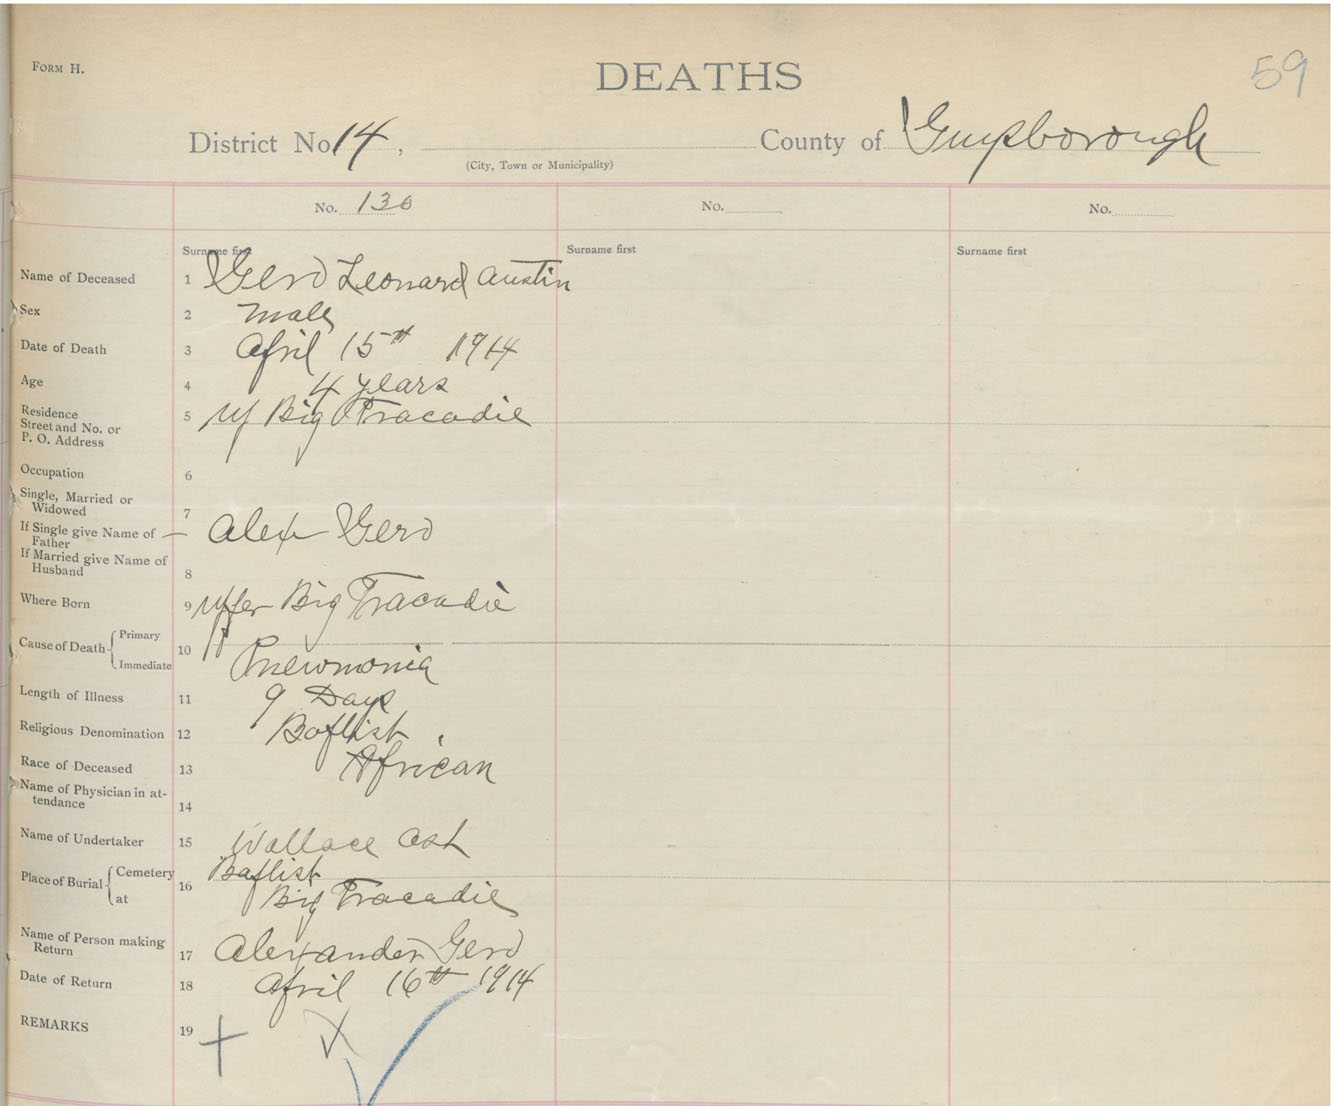 FORM H.
DEATHS
59
District No. 14,
County of Guysborough
(City, Town or Municipality)
No. 130
No.
No.
Surname first
Surname first
Surname first
Name of Deceased 1 Gero Leonard Austin
Sex 2 male
Date of Death 3 April 15th 1914
Age 4 4 years
Residence
Street and No. or
P. O. Address
5 Up Big Tracadie
Occupation 6
Single, Married or
Widowed
7
If Single give Name of
Father
Alex Gero
If Married give Name of
Husband
8
Where Born 9 Upper Big Tracadie
Cause of Death Primary
Immediate
10 Pnewmonia
Length of Illness 11 9 Days
Religious Denomination 12 Baptist
Race of Deceased 13 African
Name of Physician in at-
tendance
14
Name of Undertaker 15 Wallace Ash
Place of Burial Cemetery
at
16 Baptist
Big Tracadie
Name of Person making
Return
17 Alexander Gero
Date of Return 18 April 16th 1914
REMARKS 19